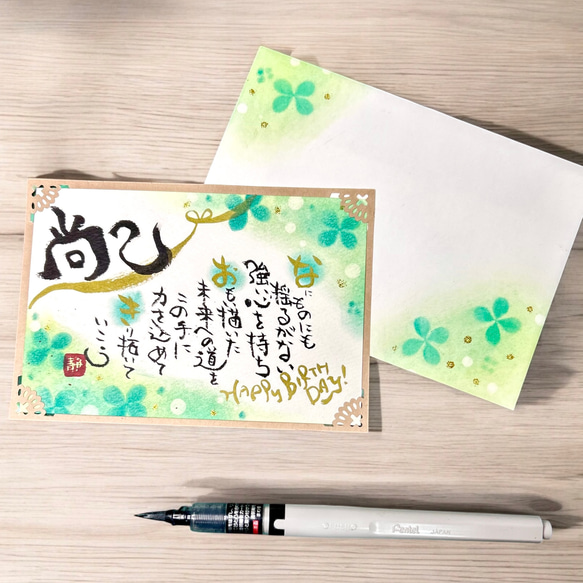 尚己
なにものにも
揺るがない
強い心を持ち
おもい描いた
未来への道を
この手に
力を込めて
きり拓いて
いこう
静
HAPPY BIRTH
DAY!
Pentel JAPAN